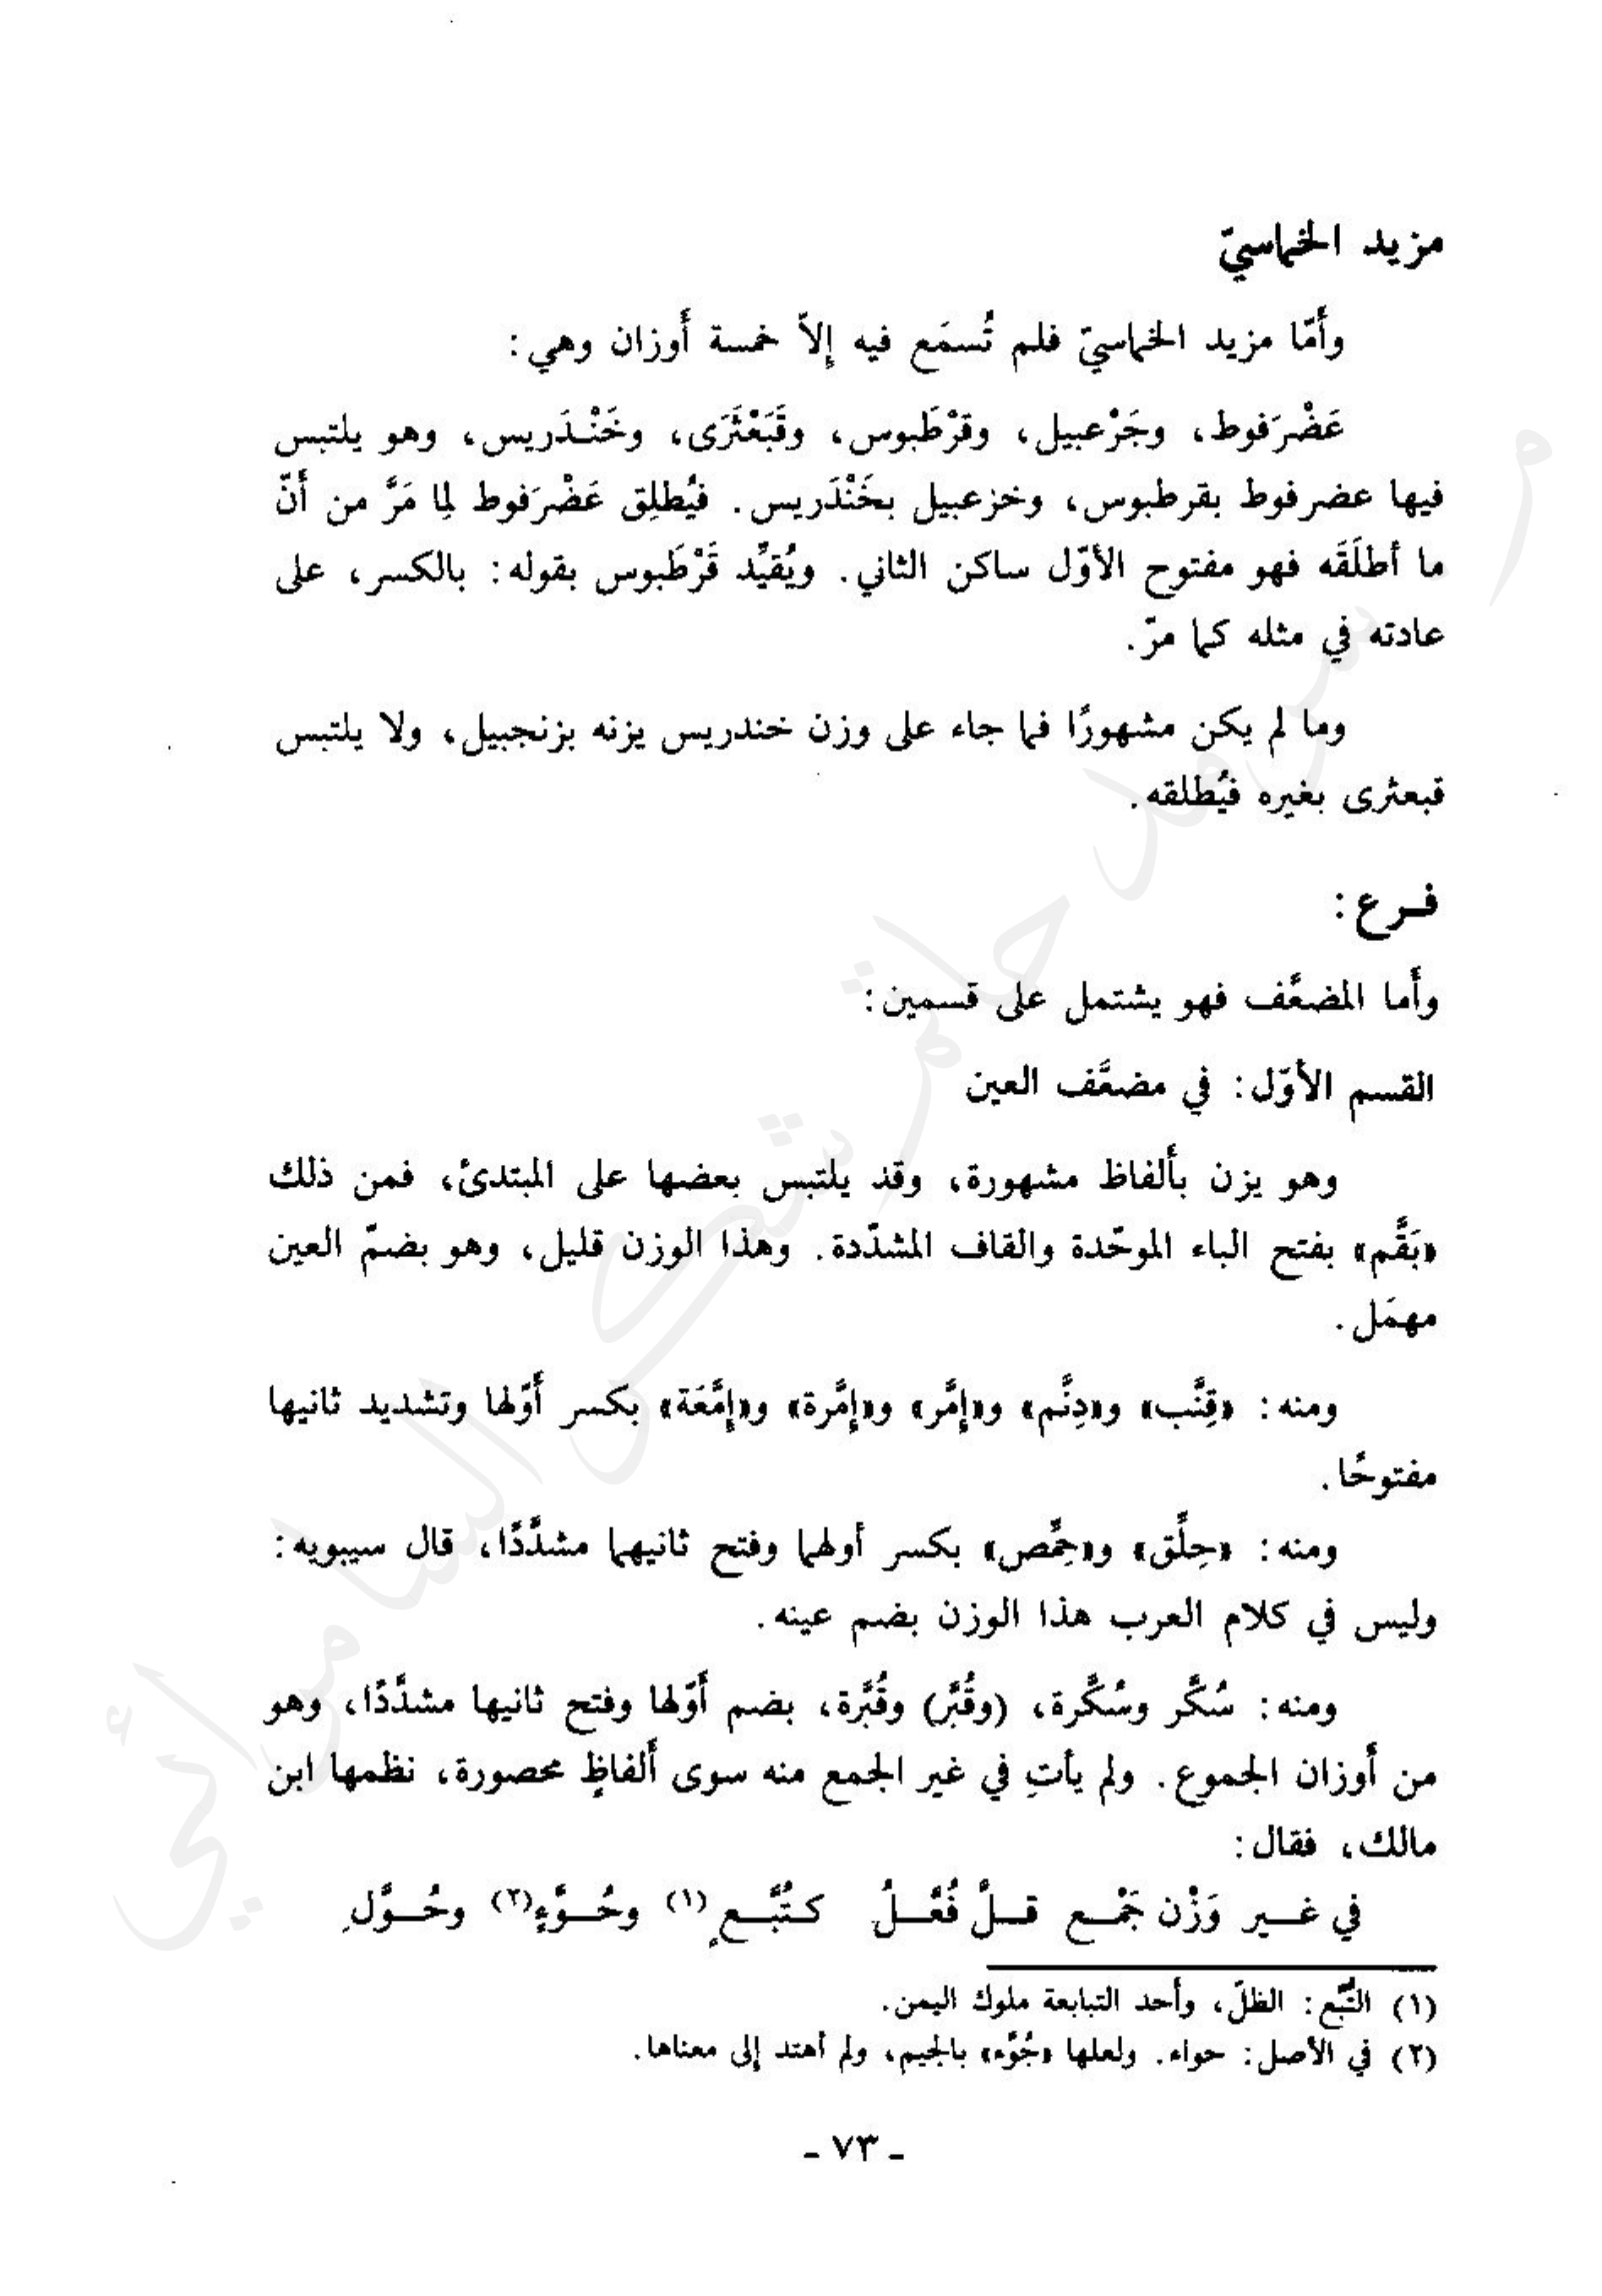 مزيد الخماسيّ
وأَمّا مزيد الخماسيّ فلم تُسمَع فيه إِلاّ خمسة أَوزان وهي:
عَضْرَفوط، وجَرْعبيل، وقرْطَبوس، وقَبَعْثَرَى، وخَنْدَريس، وهو يلتبس
فيها عضرفوط بقرطبوس، وخزعبيل بخَنْدَريس. فيُطلِق عَضْرَفوط لِما مَرَّ من أَنّ
ما أطلَقَه فهو مفتوح الأوّل ساكن الثاني. ويُقيِّد قَرْطَبوس بقوله: بالكسر، على
عادته في مثله كما مرّ.
وما لم يكن مشهورًا فما جاء على وزن خندريس يزنه بزنجبيل، ولا يلتبس
قبعثرى بغيره فيُطلقه.
فرع:
وأَما المضعَّف فهو يشتمل على قسمين:
القسم الأوّل: في مضعَّف العين
وهو يزن بأَلفاظ مشهورة، وقد يلتبس بعضها على المبتدئ، فمن ذلك
«بَقَّم» بفتح الباء الموحّدة والقاف المشدّدة. وهذا الوزن قليل، وهو بضمّ العين
مهمَل.
ومنه: «قِنَّب» و«دِنَّم» و«إِمَّر» و«إِمَّرة» و«إِمَّعَة» بكسر أَوّلها وتشديد ثانيها
مفتوحًا.
ومنه: «حِلَّق» و«حِمَّص» بكسر أولهما وفتح ثانيهما مشدَّدًا، قال سيبويه:
وليس في كلام العرب هذا الوزن بضم عينه.
ومنه: سُكَّر وسُكَّرة، (وقُبَّر) وقُبَّرة، بضم أَوّلها وفتح ثانيها مشدَّدًا، وهو
من أَوزان الجموع. ولم يأتِ في غير الجمع منه سوى أَلفاظٍ محصورة، نظمها ابن
مالك، فقال:
في غير وَزْن جَمْع قلَّ فُعَّلُ كتُبَّعٍ(١) وحُوَّءٍ(٢) وحُوَّلِ
(١) التُّبَّع: الظلّ، وأحد التبابعة ملوك اليمن.
(٢) في الأصل: حواء. ولعلها «جُوَّء» بالجيم، ولم أهتد إلى معناها.
- ٧٣ -
م. سرمد حاتم شكر السامرائي